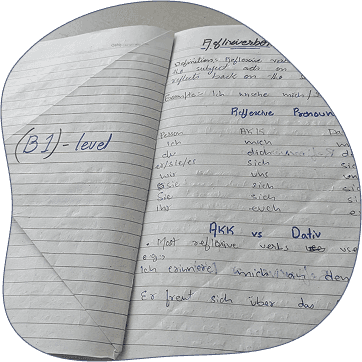 (B1)-level
Reflexiveverben
Definition: Reflexive verbs
the subject acts on
reflects back on the
Example: Ich wasche mich/
Reflexive Pronoun
Person AKK Da
ich mich m
du dich
er/sie/es sich si
wir uns
sie sich si
Sie sich si
ihr euch e
AKK vs Dativ
• Most reflexive verbs use
e.g:-
Ich erinnere mich den
Er freut sich über das